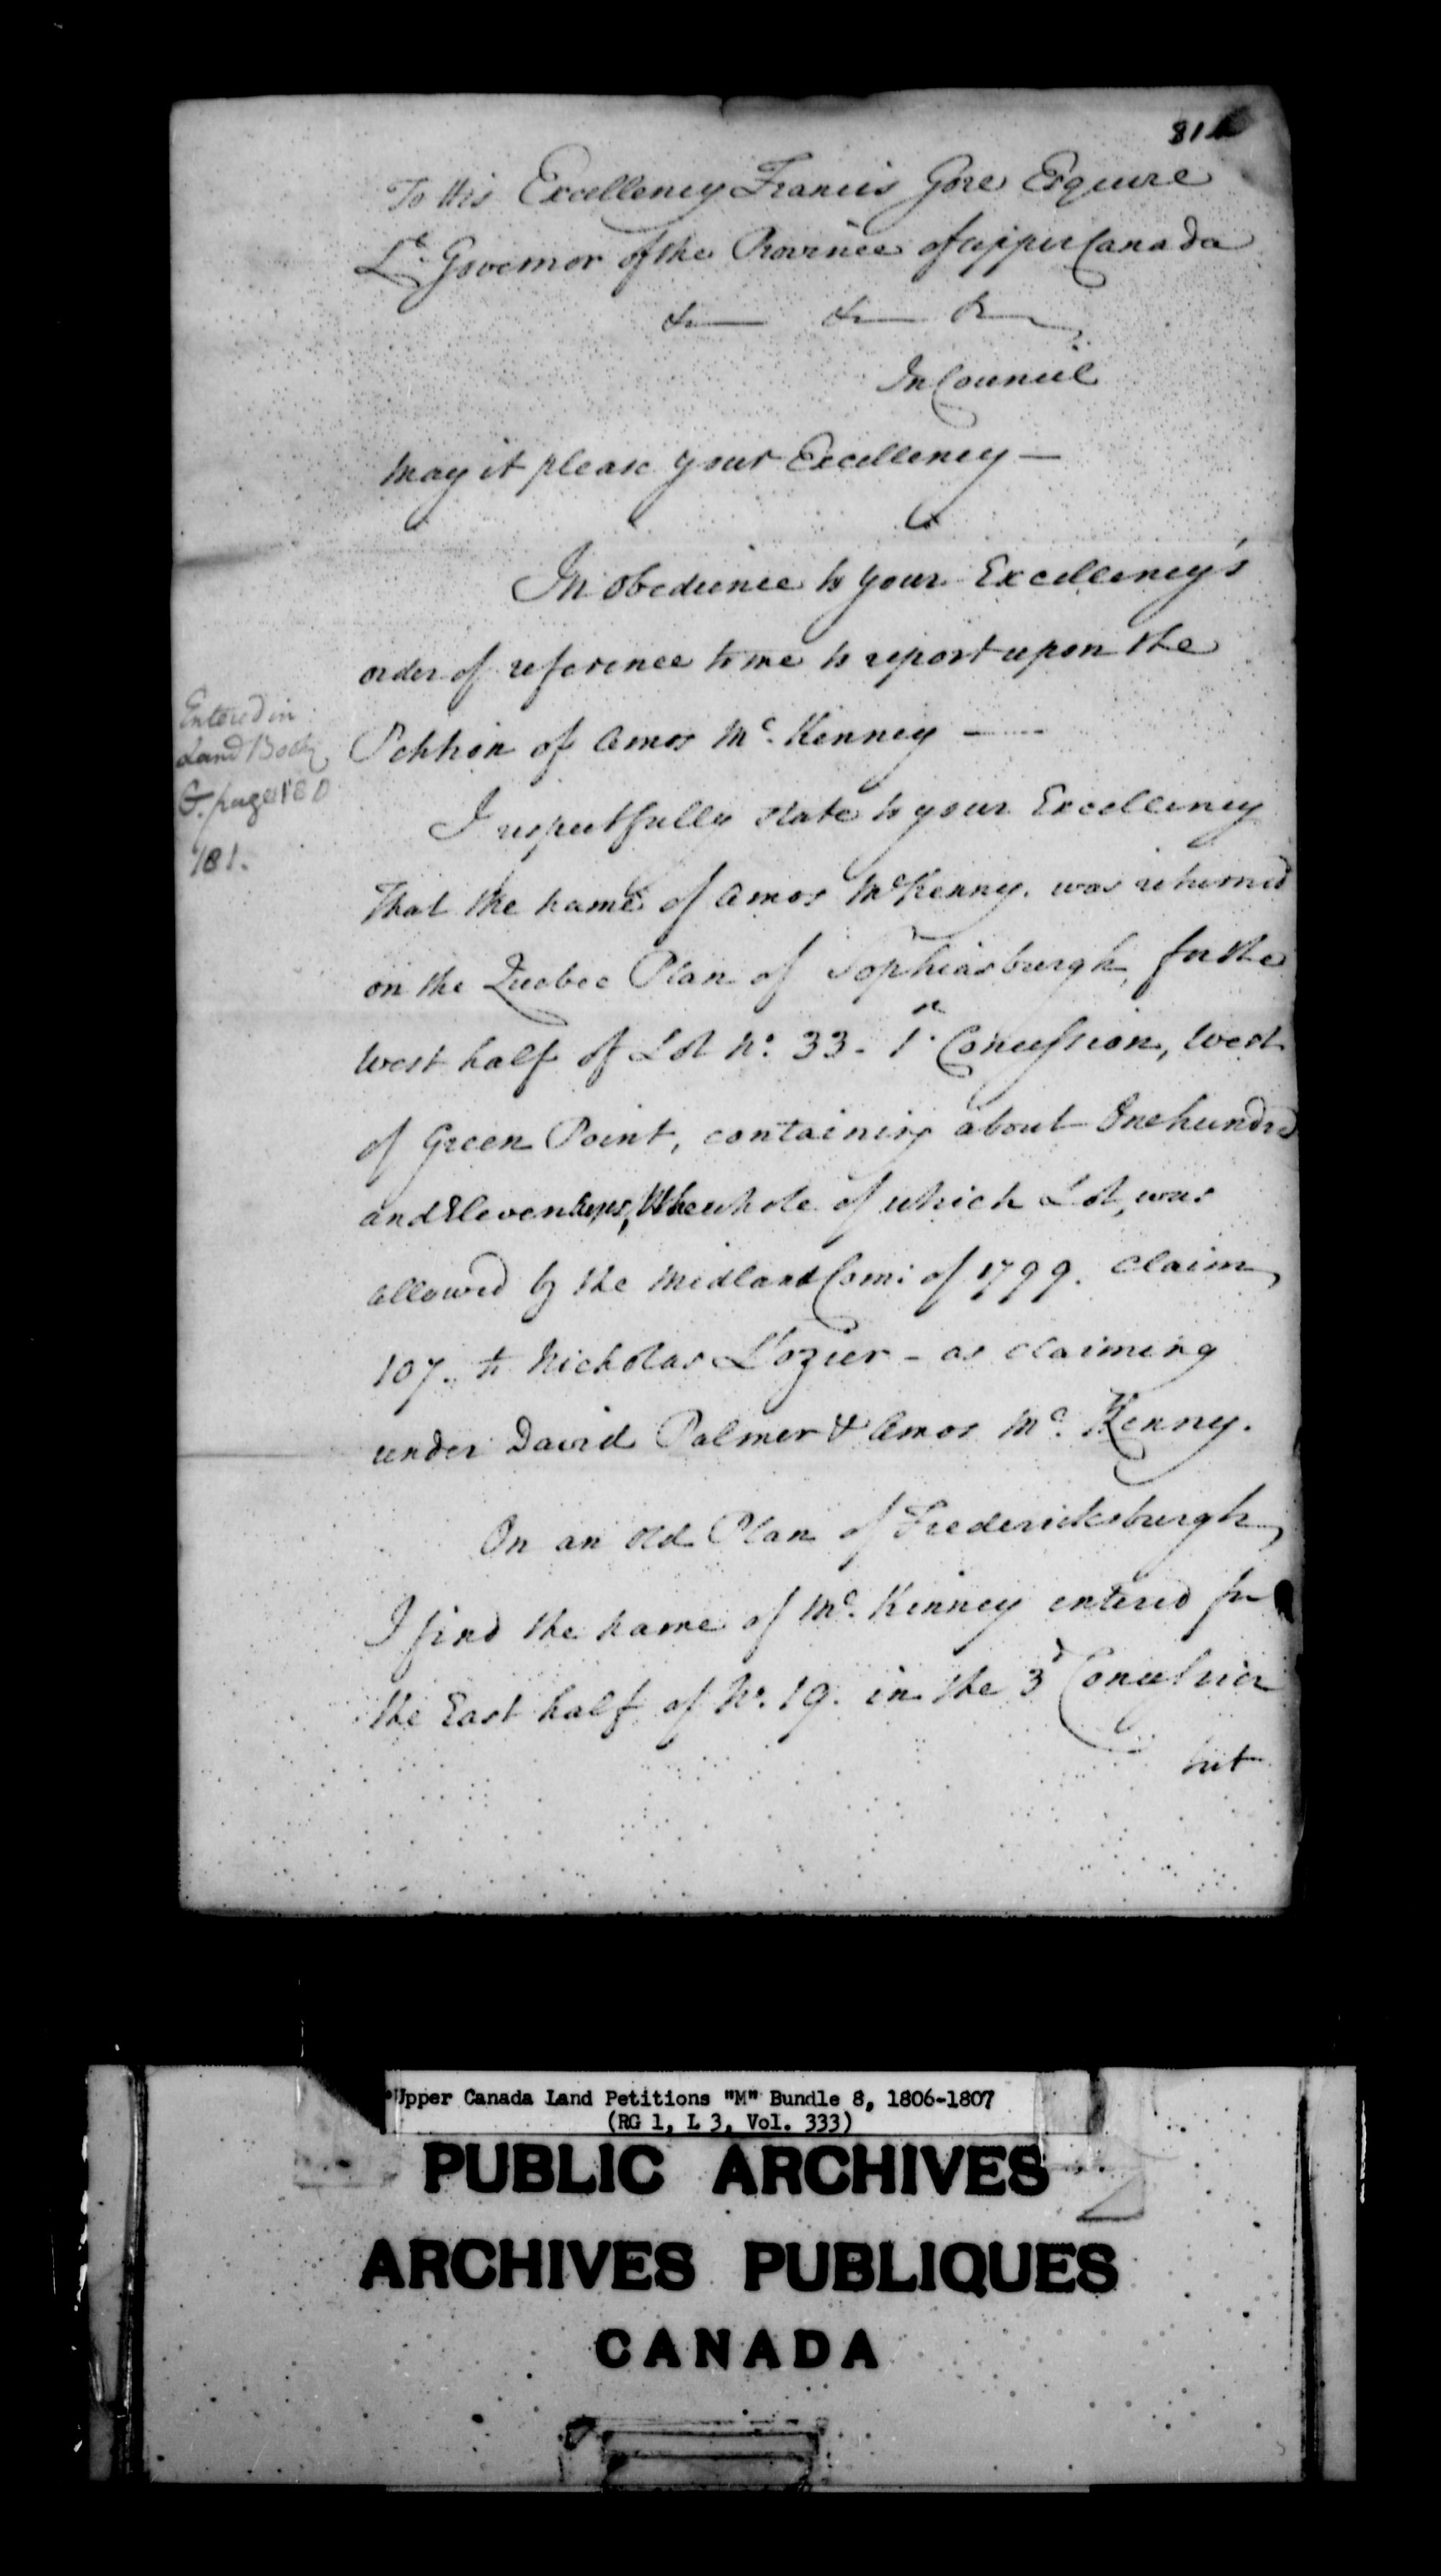 81
To His Excellency Francis Gore Esquire
Lt Governor of the Province of Upper Canada
&c &c &c
In Council
May it please your Excellency —
In obedience to your Excellency's
order of reference to me to report upon the
Petition of Amos Mc. Kenney —
Entered in
Land Book
G. page 180
181.
I respectfully state to your Excellency
That the name of Amos McKenny. was returned
on the Quebec Plan of Sophiasburgh, for the
West half of Lot No. 33 - 1st Concession, West
of Green Point, containing about One hundred
and Eleven Acres, the whole of which Lot, was
allowed by the Midland Com: of 1799. Claim
107. to Nicholas Lozier - as claiming
under David Palmer & Amos Mc. Kenny.
On an old Plan of Fredericksburgh,
I find the name of Mc. Kenney entered for
the East half of No. 19. in the 3d Concession
but
Upper Canada Land Petitions "M" Bundle 8, 1806-1807
(RG 1, L 3, Vol. 333)
PUBLIC ARCHIVES
ARCHIVES PUBLIQUES
CANADA